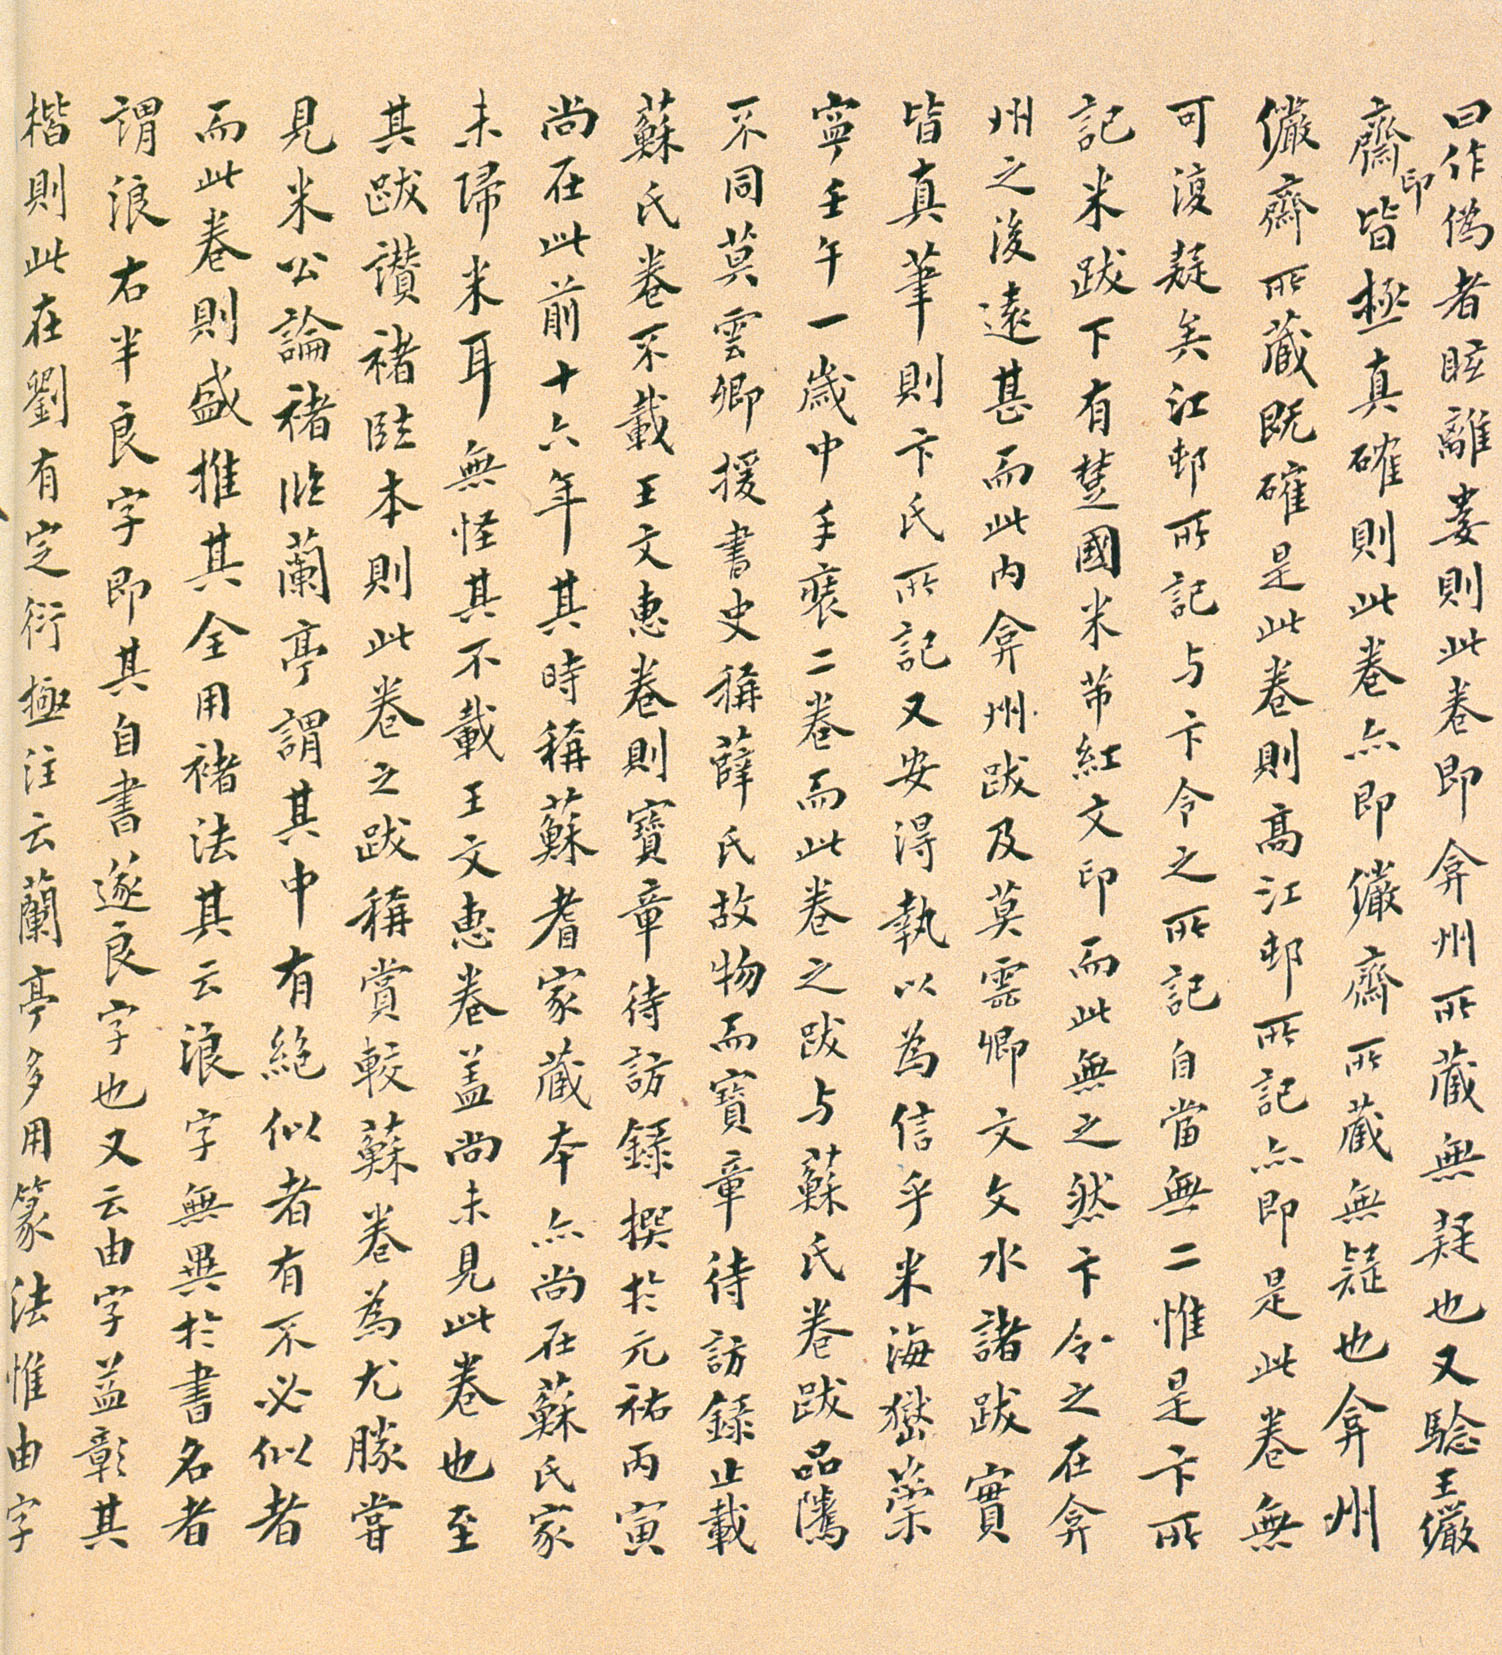 曰作偽者眩離婁則此卷即弇州所藏無疑也又驗王儼
齋印皆極真確則此卷亦即儼齋所藏無疑也弇州
儼齋所藏既確是此卷則高江邨所記亦即是此卷無
可復疑矣江邨所記与卞令之所記自當無二惟是卞所
記米跋下有楚國米芾紅文印而此無之然卞令之在弇
州之後遠甚而此内弇州跋及莫雲卿文文水諸跋實
皆真筆則卞氏所記又安得執以為信乎米海嶽崇
寧壬午一歲中手裝二卷而此卷之跋与蘇氏卷跋品隲
不同莫雲卿援書史稱薛氏故物而寶章待訪錄止載
蘇氏卷不載王文惠卷則寶章待訪錄撰於元祐丙寅
尚在此前十六年其時稱蘇耆家藏本亦尚在蘇氏家
未歸米耳無怪其不載王文惠卷盖尚未見此卷也至
其跋讚褚臨本則此卷之跋稱賞較蘇卷為尤勝嘗
見米公論褚臨蘭亭謂其中有絕似者有不必似者
而此卷則盛推其全用褚法其云浪字無異於書名者
謂浪右半良字即其自書遂良字也又云由字益彰其
楷則此在劉有定衍極注云蘭亭多用篆法惟由字